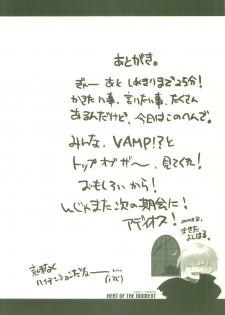 あとがき。
ぎゃー あと しめきりまで25分!
かきたい事、言いたい事、たくさん
あるんだけど、今日はこのへんで。
みんな、VAMP!?と
トップオブザ〜、見てくれ!
おもしろいから!
んじゃまた次の機会に!
アデオス!
まきた
よしはる。
ハイテンションだな
BEAT OF THE MOMENT